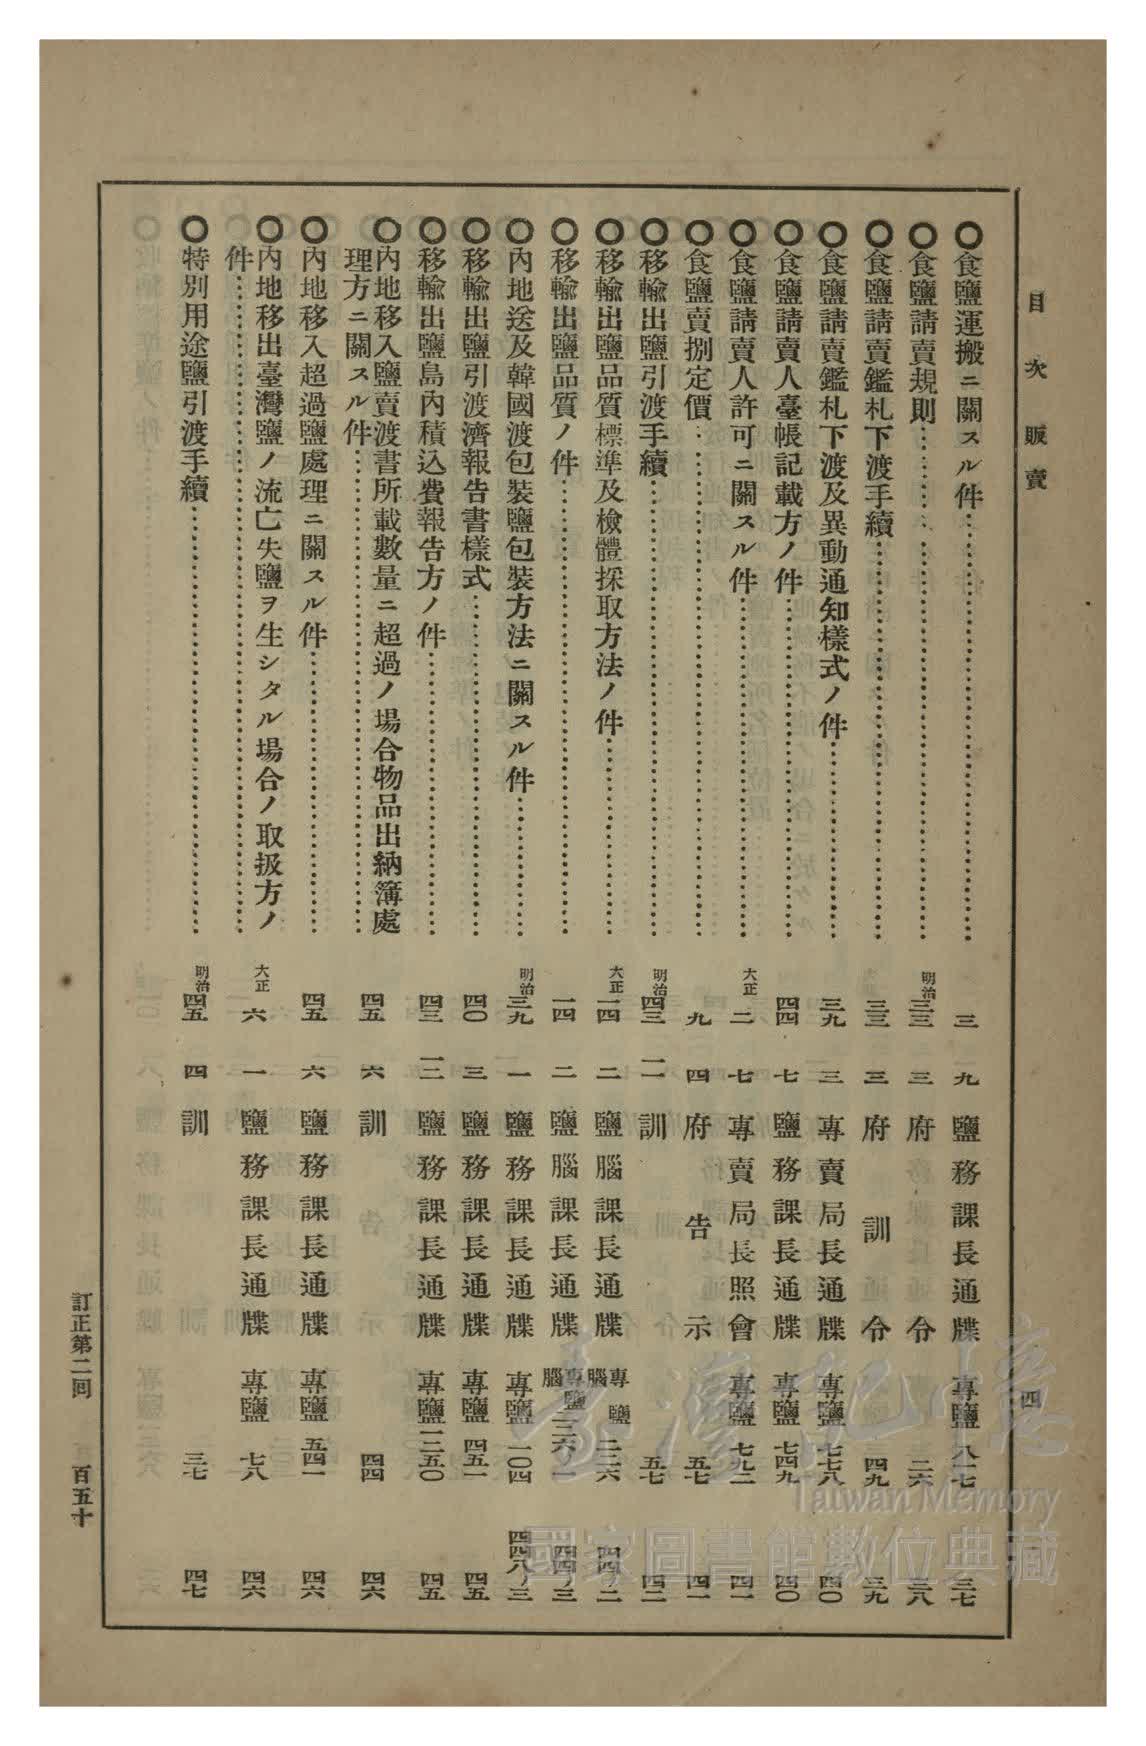 目次 販賣 四
〇食鹽運搬ニ關スル件 三 一九 鹽務課長通牒 專鹽八一七 三七
〇食鹽請賣規則 明治三三 三 府令 二六 三八
〇食鹽請賣鑑札下渡手續 三三 三 府訓令 四九 三九
〇食鹽請賣鑑札下渡及異動通知樣式ノ件 三九 三 專賣局長通牒 專鹽七七八 四〇
〇食鹽請賣人臺帳記載方ノ件 四四 七 鹽務課長通牒 專鹽七四九 四〇
〇食鹽請賣人許可ニ關スル件 大正二 七 專賣局長照會 專鹽七九二 四一
〇食鹽賣捌定價 九 四 府告示 五七 四一
〇移輸出鹽引渡手續 明治四三 一一 訓 五七 四二
〇移輸出鹽品質標準及檢體採取方法ノ件 大正一四 二 鹽腦課長通牒 專鹽腦二二六 四四ノ二
〇移輸出鹽品質ノ件 一四 二 鹽腦課長通牒 專鹽腦二二六ノ一 四四ノ三
〇內地送及韓國渡包裝鹽包裝方法ニ關スル件 明治三九 一 鹽務課長通牒 專鹽一〇四 四四八ノ三
〇移輸出鹽引渡濟報告書樣式 四〇 三 鹽務課長通牒 專鹽四五一 四五
〇移輸出鹽島內積込費報告方ノ件 四三 一二 鹽務課長通牒 專鹽一三五〇 四五
〇內地移入鹽賣渡書所載數量ニ超過ノ場合物品出納簿處
理方ニ關スル件 四五 六 訓 四四 四六
〇內地移入超過鹽處理ニ關スル件 四五 六 鹽務課長通牒 專鹽五四一 四六
〇內地移出臺灣鹽ノ流亡失鹽ヲ生シタル場合ノ取扱方ノ
件 大正六 一 鹽務課長通牒 專鹽七八 四六
〇特別用途鹽引渡手續 明治四五 四 訓 三七 四七
訂正第二回 百五十
臺灣記憶
Taiwan Memory
國家圖書館數位典藏